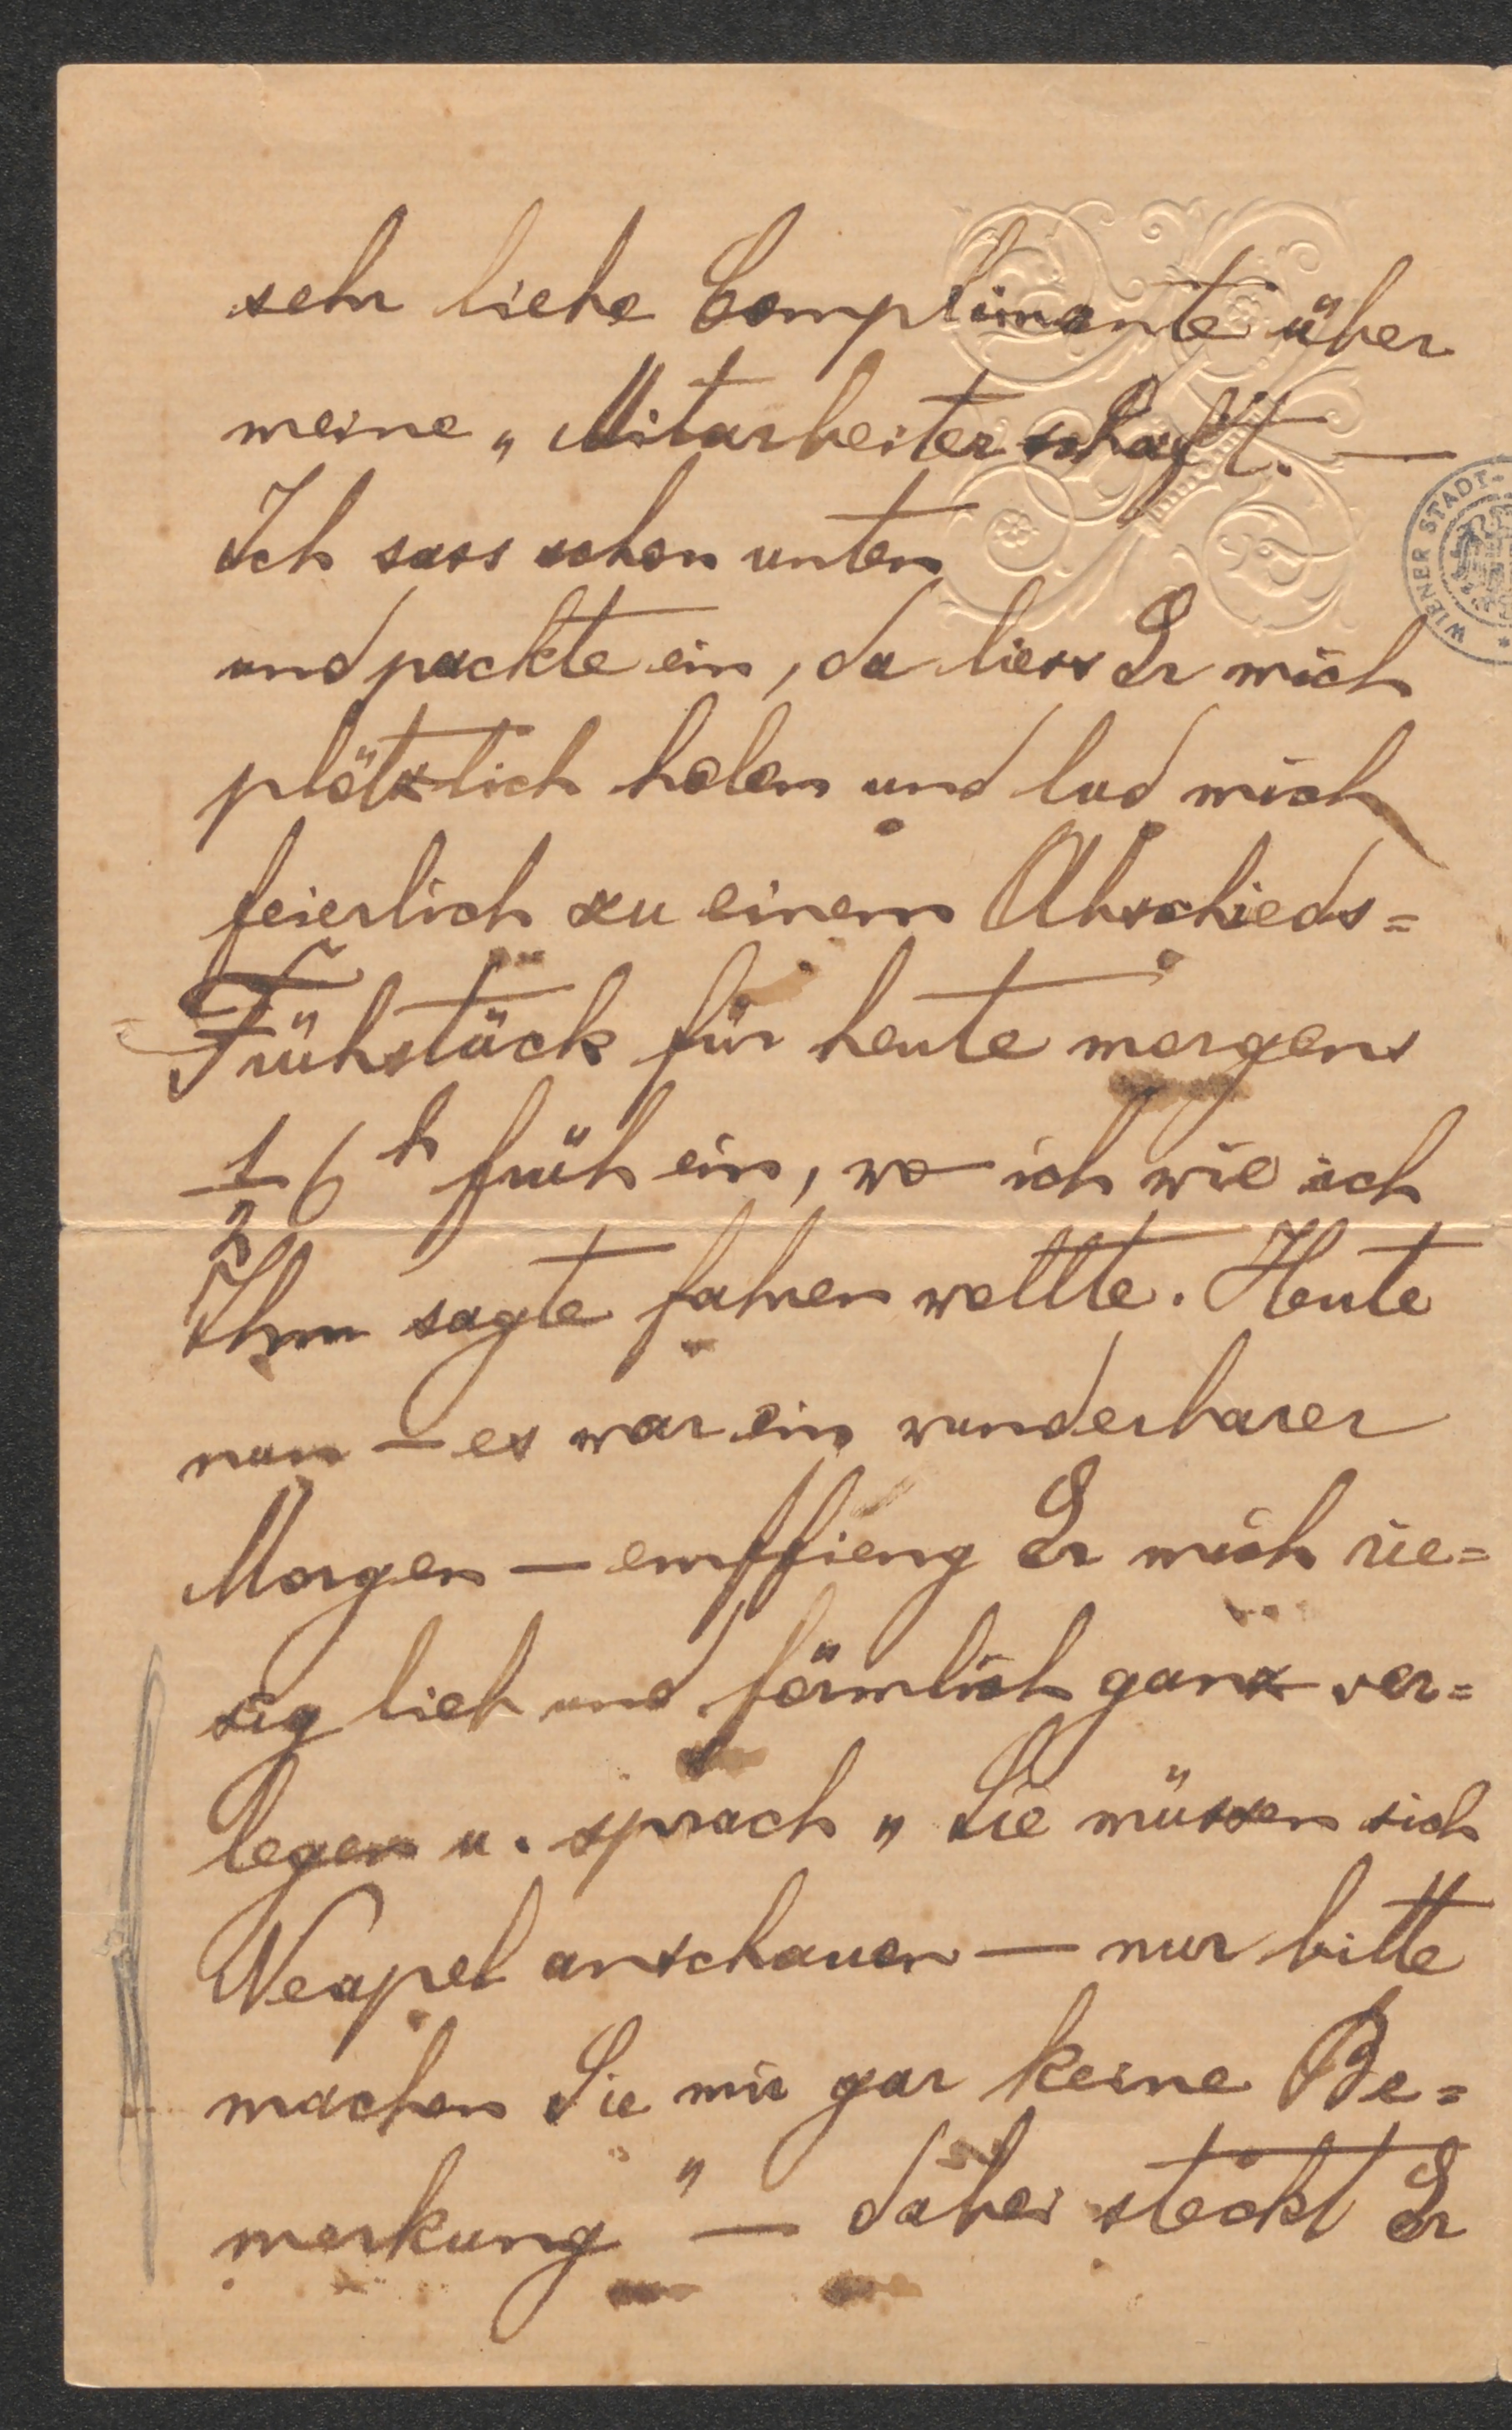 sehr liebe Complimente über
meine „Mitarbeiterschaft. —
Ich sass schon unten
und packte ein, da liess Er mich
plötzlich holen und lud mich
feierlich zu einem Abschieds=
Frühstück für heute morgens
½ 6h früh ein, wo ich wie ich
Ihm sagte fahren wollte. Heute
nun — es war ein wunderbarer
Morgen — empfieng Er mich rie=
sig lieb und förmlich ganz ver=
legen u. sprach „Sie müssen sich
Neapel anschauen — nur bitte
machen Sie mir gar keine Be=
merkung" — dabei steckt Er
WIENER STADT-